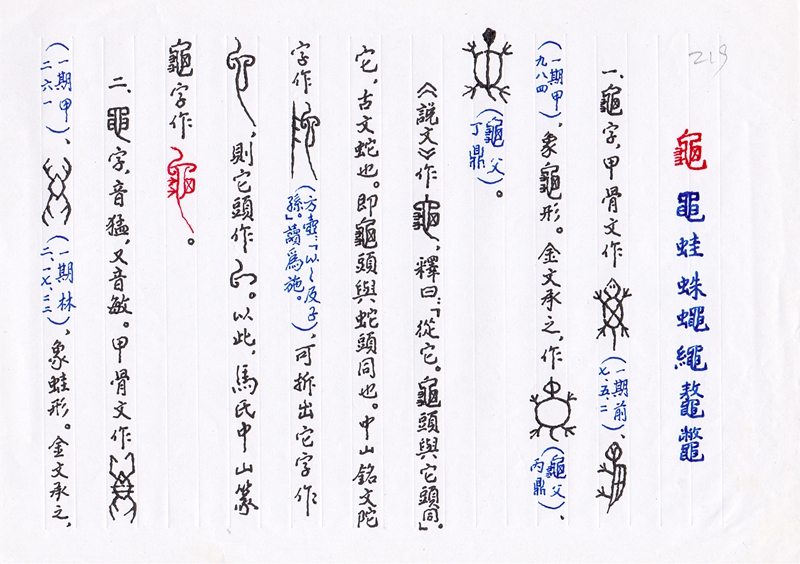 219
龜 黽 蛙 蛛 蠅 繩 鼇 鼈
一、龜字，甲骨文作（一期前七、五、二）、
（一期甲九八四），象龜形。金文承之，作（龜父丙鼎）、
（龜父丁鼎）。
《說文》作龜，釋曰：「從它。龜頭與它頭同」。
它，古文蛇也。即龜頭與蛇頭同也。中山銘文陀
字作（方壺：「以陀及子孫」。讀為施。），可拆出它字作
，則它頭作。以此，馬氏中山篆
龜字作。
二、黽字，音猛，又音敏。甲骨文作
（一期甲二六一）、（一期林二、一七、二二），象蛙形。金文承之，